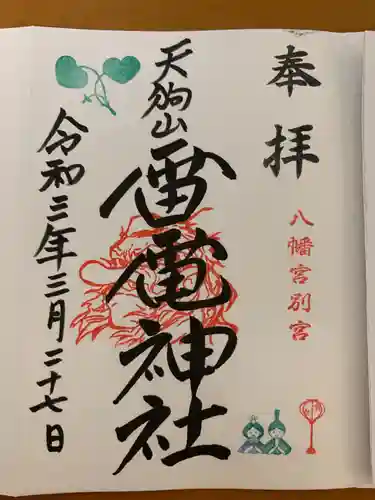 奉拝
八幡宮別宮
天狗山
雷電神社
令和三年三月二十七日